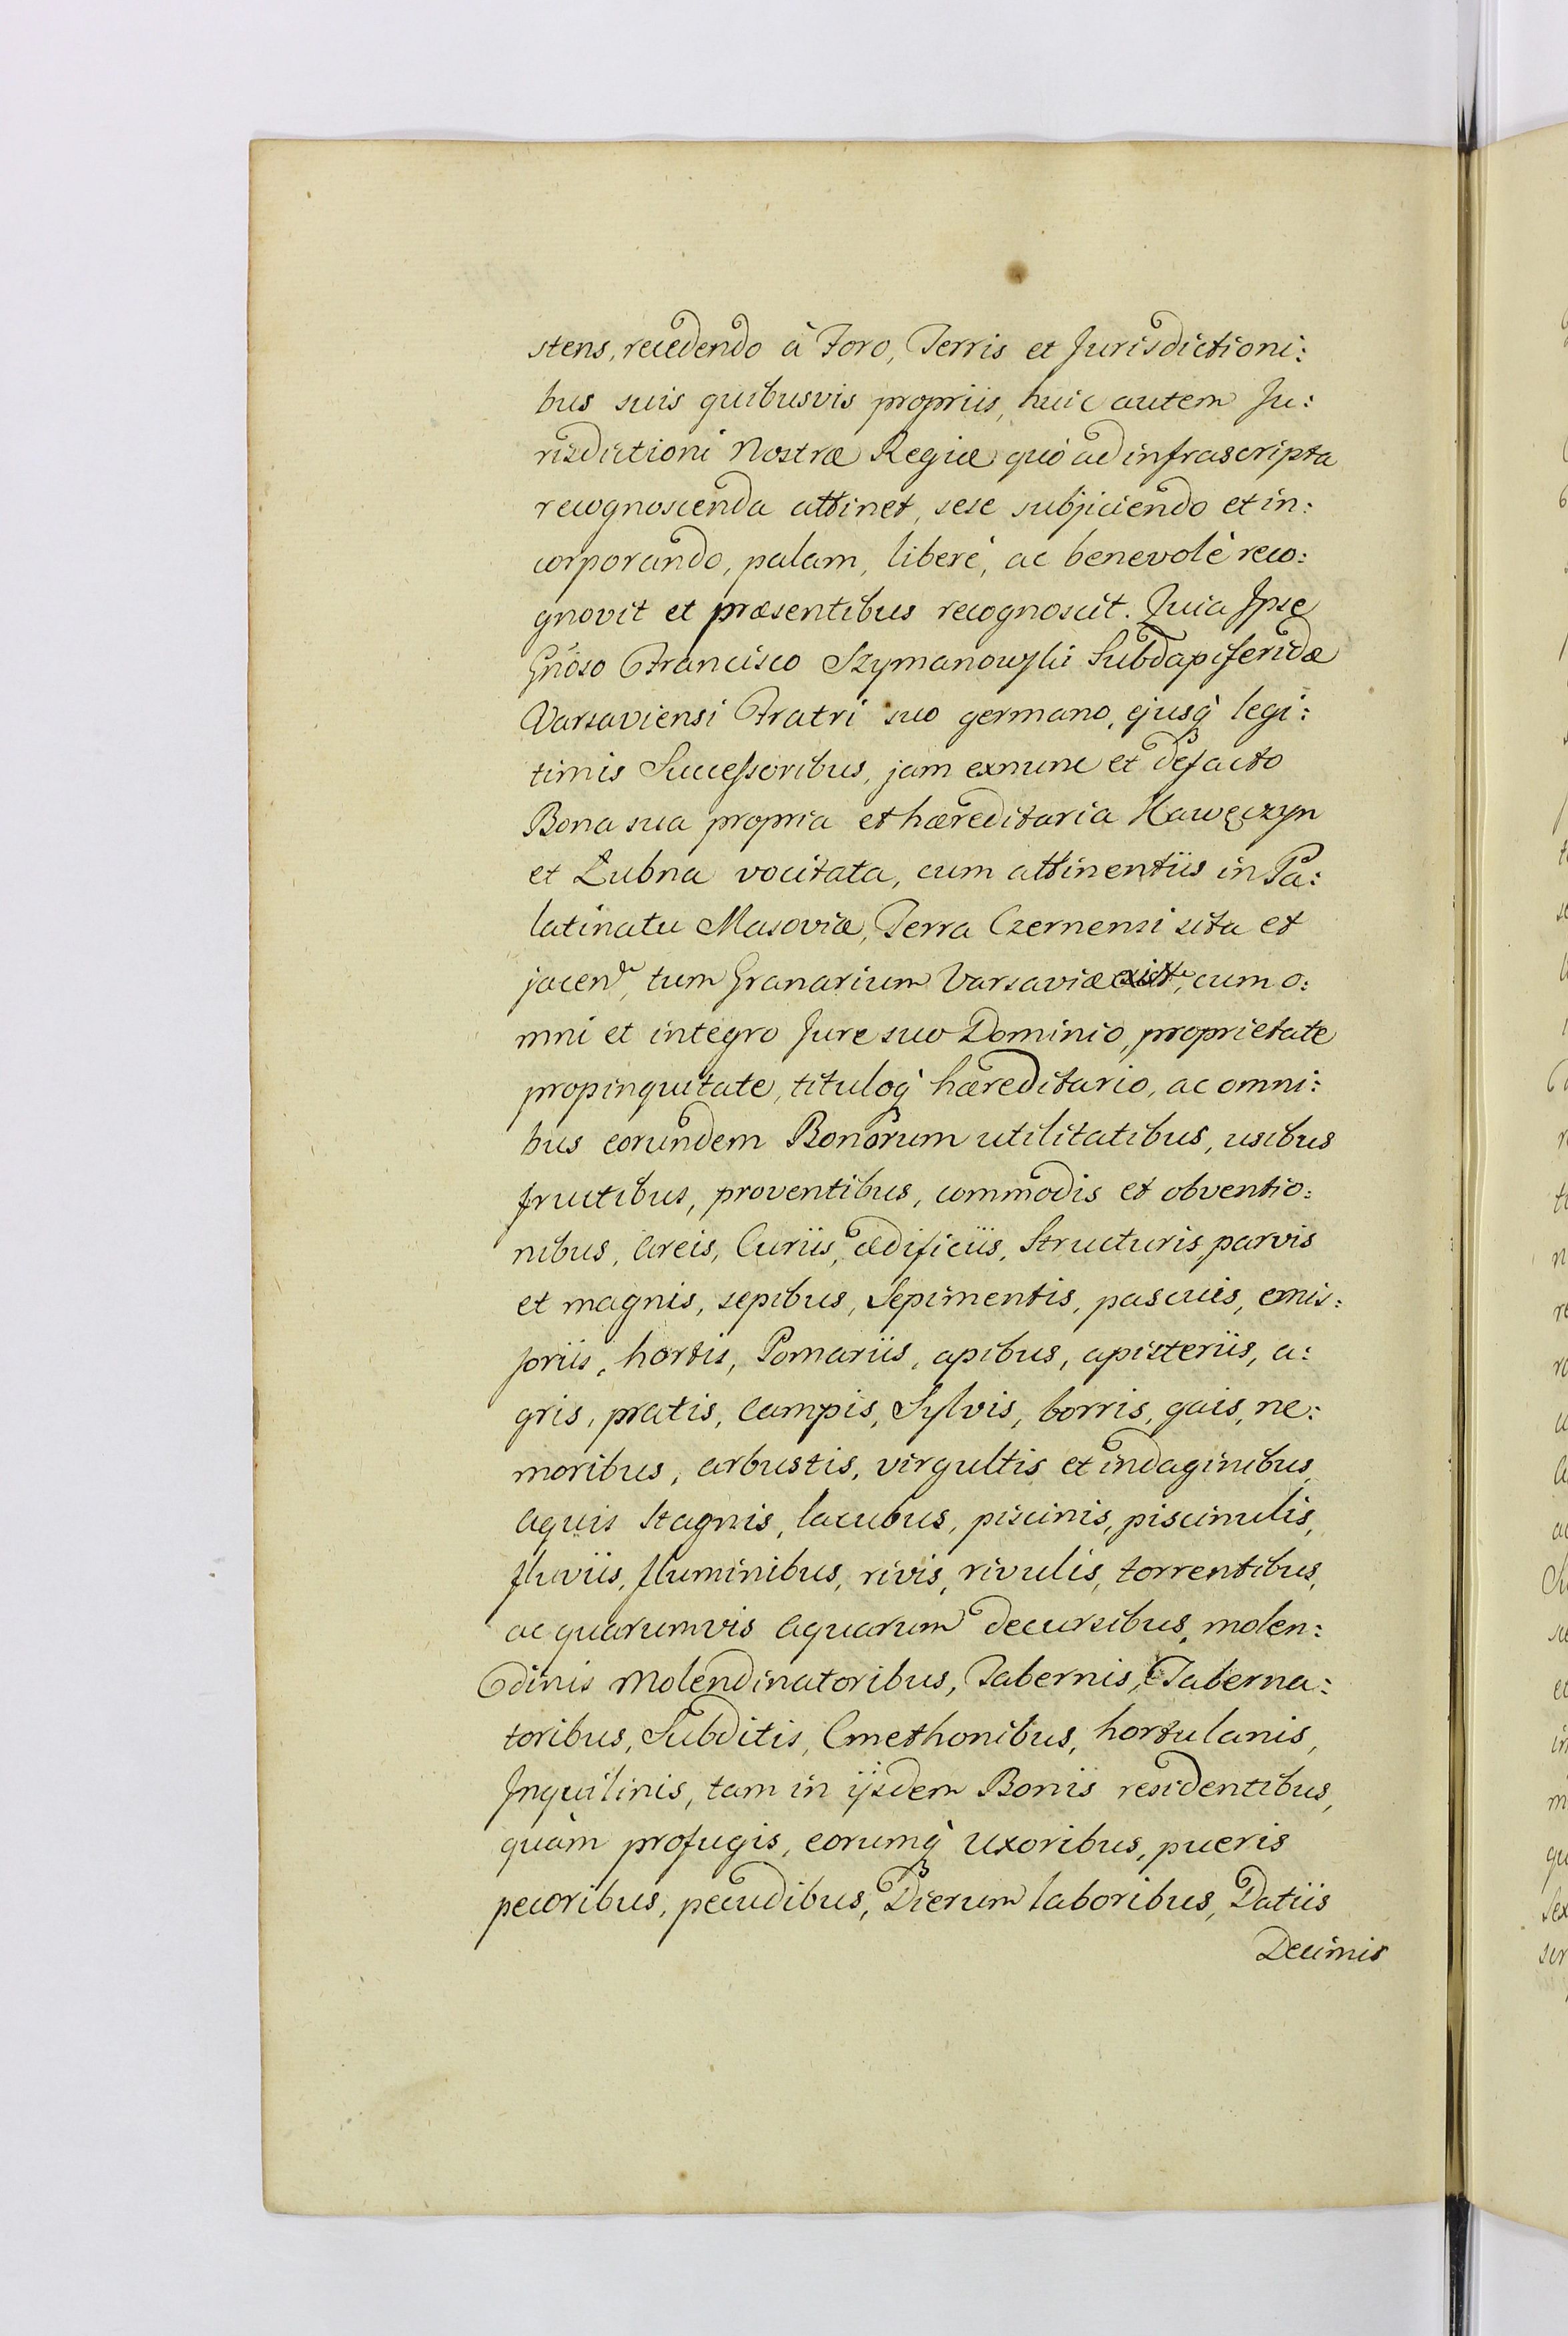 stens, recedendo à Foro, Terris et Jurisdictioni:
bus suis quibusvis propriis, huic autem Ju:
risdictioni Nostræ Regiæ quò ad infrascripta
recognoscenda attinet, sese subjiciendo et in:
corporando, palam, liberè, ac benevolè reco:
gnovit et præsentibus recognoscit. Quia Ipse
Gnoso Francisco Szymanowski Subdapiferidæ
Varsaviensi Fratri suo germano, ejusq̀ legi:
timis Successoribus, jam exnunc et defacto
Bona sua propria et hæreditaria Kawęczyn
et Łubna vocitata, cum attinentiis in Pa:
latinatu Masoviæ, Terra Czernensi sita et
jacen, tum Granarium Varsaviæ exist, cum o:
mni et integro Jure suo Dominio, proprietate
propinquitate, tituloq̀ hæreditario, ac omni:
bus eorundem Bonorum utilitatibus, usibus
fructibus, proventibus, commodis et obventio:
nibus, Areis, Curiis, ædificiis, Structuris parvis
et magnis, sepibus, Sepimentis, pascuis, emis:
soriis, hortis, Pomariis, apibus, apisteriis, a:
gris, pratis, Campis, Sylvis, borris, gais, ne:
moribus, arbustis, virgultis et indaginibus,
Aquis Stagnis, lacubus, piscinis, piscinulis,
fluviis, fluminibus, rivis, rivulis, torrentibus,
ac quarumvis Aquarum decursibus, molen:
dinis Molendinatoribus, Tabernis, Taberna:
toribus, Subditis, Cmethonibus, hortulanis,
Inquilinis, tam in ijsdem Bonis residentibus,
quàm profugis, eorumq̀ Uxoribus, pueris
pecoribus, pecudibus, Dierum laboribus, Datiis
Decimis